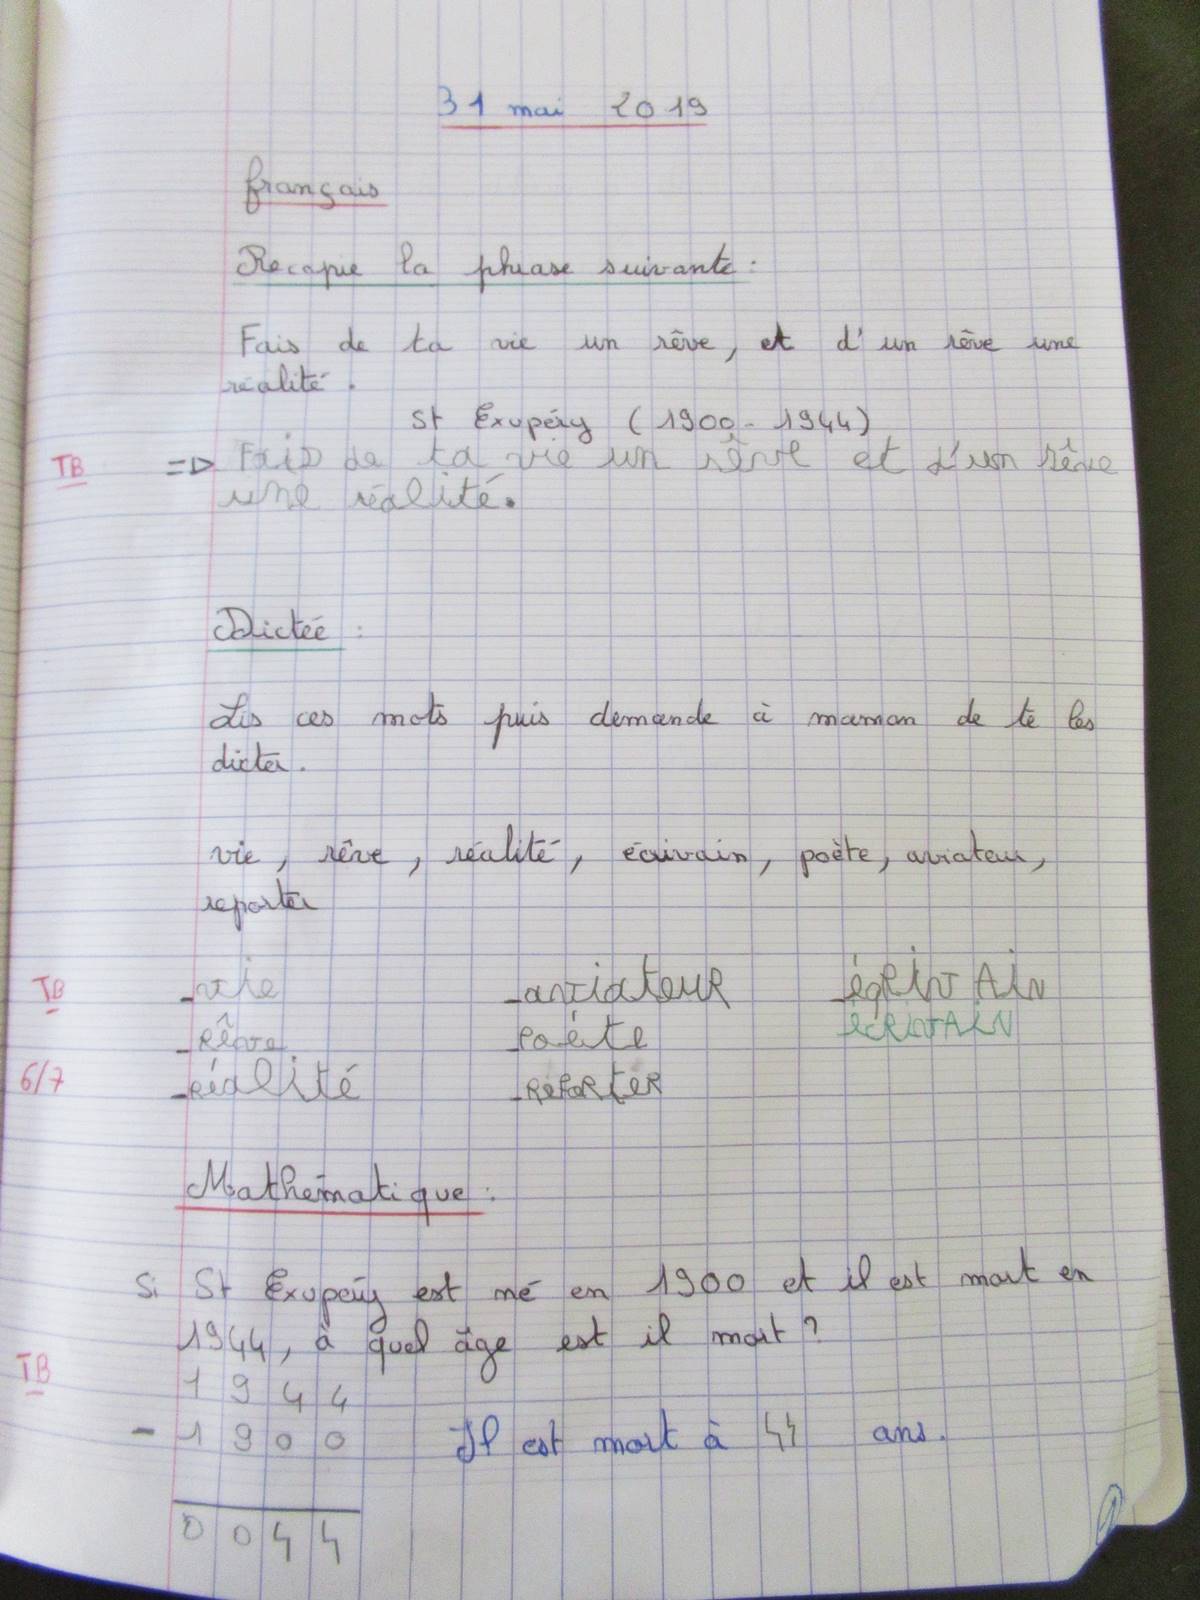 31 mai 2019
français
Recopie la phrase suivante :
Fais de ta vie un rêve, et d'un rêve une
réalité.
St Exupéry (1900 - 1944)
TB => Fais de ta vie un rêve et d'un rêve
une réalité.
Dictée :
Lis ces mots puis demande à maman de te les
dicter.
vie, rêve, réalité, écrivain, poète, aviateur,
reporter
TB - vie - aviateuR - éqRivAiN
- Rêve - Poéte écRivAiN
6/7 - Réalité - RePoRteR
Mathématique :
Si St Exupéry est né en 1900 et il est mort en
1944, à quel âge est il mort ?
TB 1944
- 1900 Il est mort à 44 ans.
0044